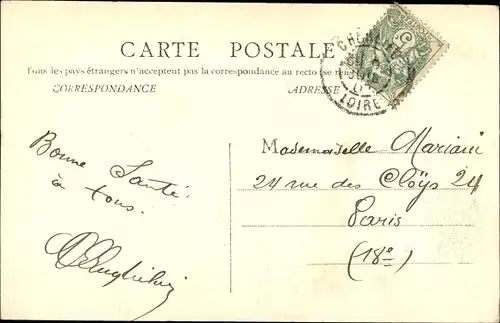 CARTE POSTALE
Tous les pays étrangers n'acceptent pas la correspondance au recto (se
CORRESPONDANCE
ADRESSE
LOIRE
Bonne Santé
à tous.
Mademoiselle Mariani
24 rue des Cloÿs 24
Paris
(18e)